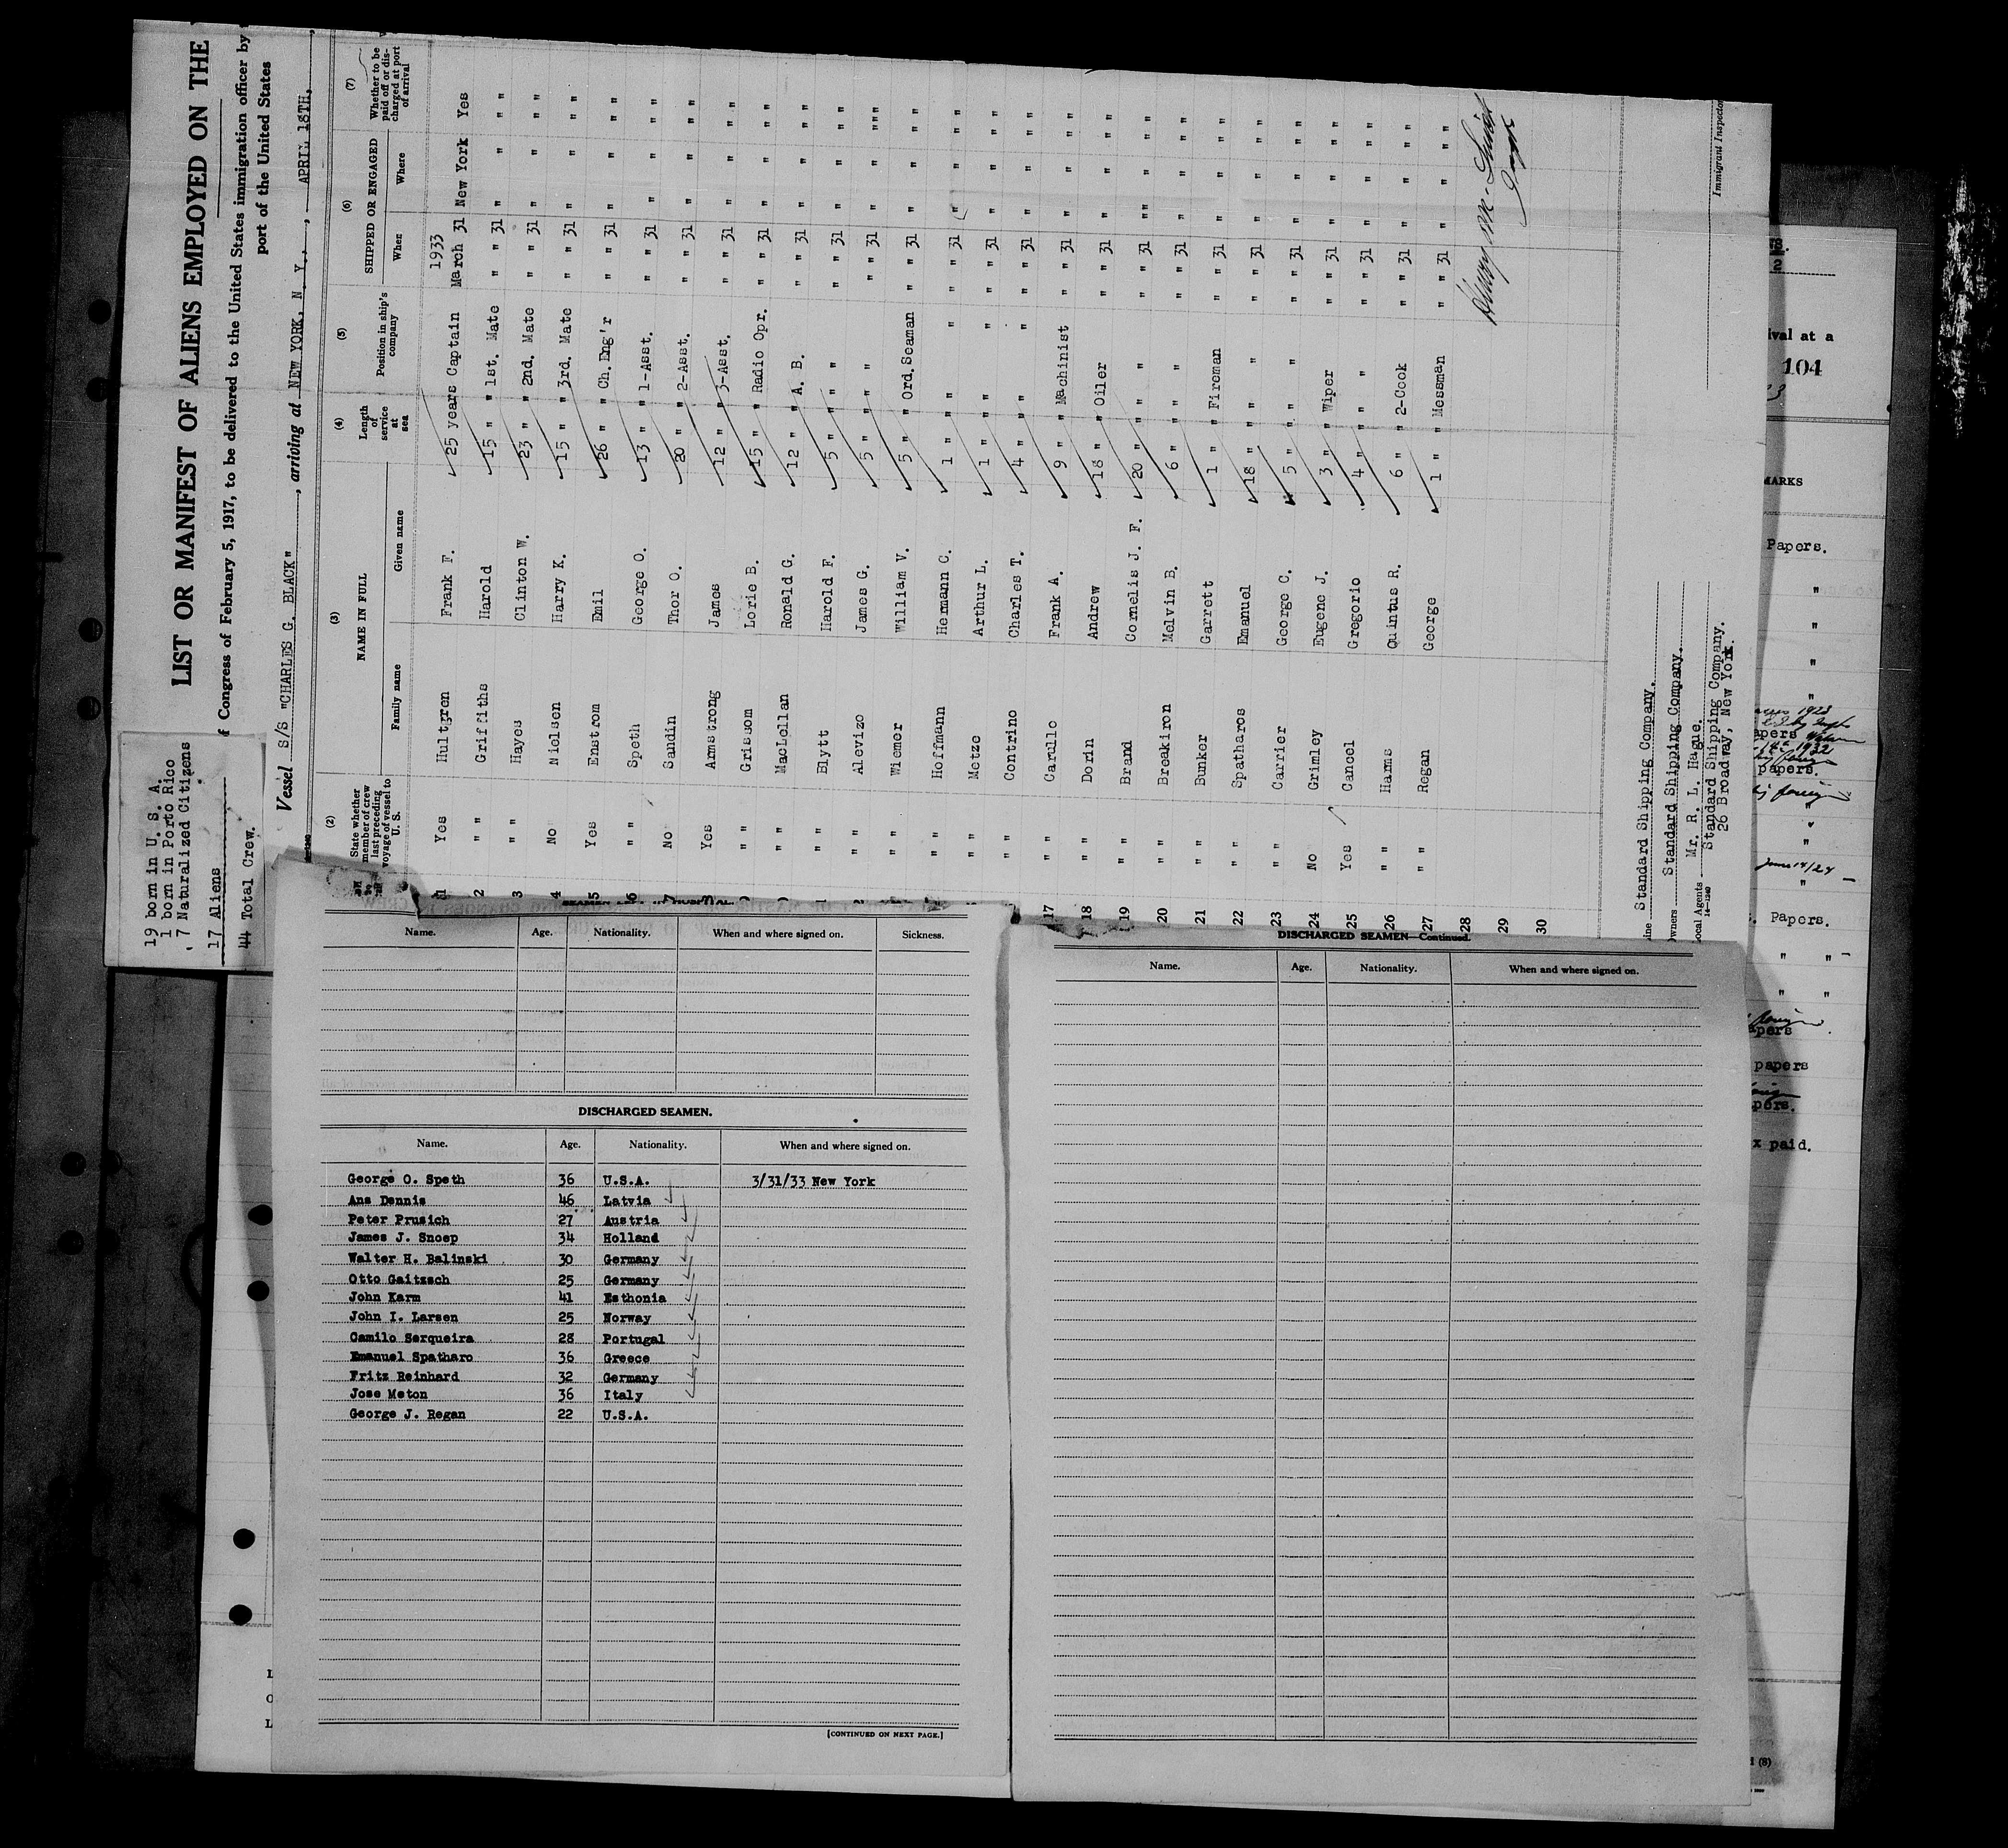 19 born in U. S. A.
1 born in Porto Rico
7 Naturalized Citizens
17 Aliens
44 Total Crew.
LIST OR MANIFEST OF ALIENS EMPLOYED ON THE
f Congress of February 5, 1917, to be delivered to the United States immigration officer by
port of the United States
Vessel S/S "CHARLES G. BLACK", arriving at NEW YORK, N. Y., APRIL 18TH,
(2) (3) (4) (5) (6) (7)
State whether member of crew last preceding voyage of vessel to U. S.
NAME IN FULL
Family name Given name
Length of service at sea
Position in ship's company
SHIPPED OR ENGAGED
When Where
Whether to be paid off or discharged at port of arrival
1933
1 Yes Hultgren Frank F. 25 years Captain March 31 New York Yes
2 " " Griffiths Harold 15 " 1st. Mate " " 31 " " " "
3 " " Hayes Clinton W. 23 " 2nd. Mate " " 31 " " " "
4 No Nielsen Harry K. 15 " 3rd. Mate " " 31 " " " "
5 Yes Enstrom Emil 26 " Ch. Eng'r " " 31 " " " "
6 " " Speth George O. 13 " 1-Asst. " " 31 " " " "
7 No Sandin Thor O. 20 " 2-Asst. " " 31 " " " "
Yes Armstrong James 12 " 3-Asst. " " 31 " " " "
" " Grissom Lorie B. 15 " Radio Opr. " " 31 " " " "
" " MacLellan Ronald G. 12 " A. B. " " 31 " " " "
" " Blytt Harold F. 5 " " " " " 31 " " " "
" " Alevizo James G. 5 " " " " " 31 " " " " "
" " Wiemer William V. 5 " Ord. Seaman " " 31 " " " "
" " Hoffmann Hermann C. 1 " " " " " 31 " " " "
" " Metze Arthur L. 1 " " " " " 31 " " " "
" " Contrino Charles T. 4 " " " " " 31 " " " "
17 " " Carullo Frank A. 9 " " Machinist " " 31 " " " "
18 " " Dorin Andrew 18 " Oiler " " 31 " " " "
19 " " Brand Cornelis J. F. 20 " " " " " 31 " " " "
20 " " Breakiron Melvin B. 6 " " " " " 31 " " " "
21 " " Bunker Garrett 1 " " Fireman " " 31 " " " "
22 " " Spatharos Emanuel 18 " " " " " 31 " " " "
23 " " Carrier George C. 5 " " " " " 31 " " " "
24 No Grimley Eugene J. 3 " Wiper " " 31 " " " "
25 Yes Cancel Gregorio 4 " " " " " 31 " " " "
26 " " Harms Quintus R. 6 " 2-Cook " " 31 " " " "
27 " " Regan George 1 " Messman " " 31 " " " "
28
29
30
Immigrant Inspector
Standard Shipping Company.
Owners Standard Shipping Company.
Local Agents Mr. R. L. Hague.
Standard Shipping Company.
26 Broadway, New York.
ival at a
104
MARKS
Papers.
"
"
"
"
1923
apers
1932
papers.
"
"
June 14/24
"
Papers.
" "
" "
apers
papers
pers.
x paid.
Name. Age. Nationality. When and where signed on. Sickness.
DISCHARGED SEAMEN.
Name. Age. Nationality. When and where signed on.
George O. Speth 36 U.S.A. 3/31/33 New York
Ans Dennis 46 Latvia
Peter Prusich 27 Austria
James J. Snoep 34 Holland
Walter H. Balinski 30 Germany
Otto Gaitzsch 25 Germany
John Karm 41 Esthonia
John I. Larsen 25 Norway
Camilo Serqueira 28 Portugal
Emanuel Spatharo 36 Greece
Fritz Reinhard 32 Germany
Jose Meton 36 Italy
George J. Regan 22 U.S.A.
[CONTINUED ON NEXT PAGE.]
DISCHARGED SEAMEN—Continued.
Name. Age. Nationality. When and where signed on.
(8)